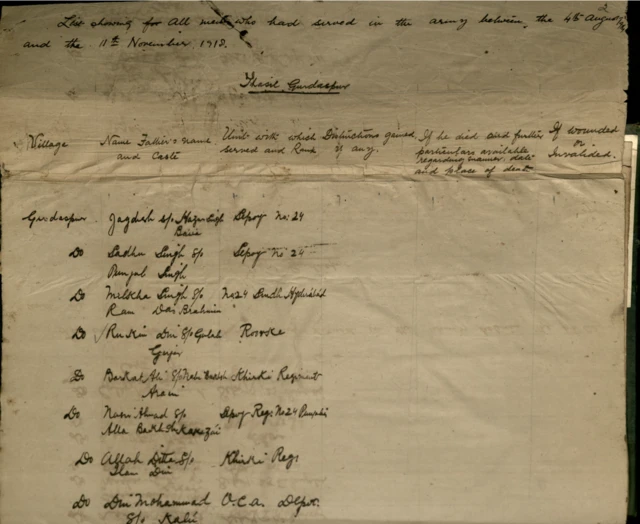 List showing for All men who had served in the army between, the 4th August
and the 11th November 1918.
Thasil Gurdaspur
Village Name Father's name Unit with which Distinctions gained If he died and further If wounded
and Caste served and Rank if any. particulars available or
regarding manner, date Invalided.
and place of death
Gurdaspur Jagdish s/o Sepoy No: 24
Do Sadhu Singh S/o Sepoy No 24
Punjab Singh
Do Milkha Singh S/o No 24 Sindh Hyderabad
Ram Das Brahmin
Do Din S/o Roorke
Do Barkat Ali S/o Nabi Baksh Khirki Regiment
Arain
Do Ahmad S/o Sepoy Reg: No 24 Punjabi
Alla Bakhsh Kakezai
Do Allah Ditta S/o Khirki Reg
Din
Do Din Mohammad O.C.A. Depot
S/o